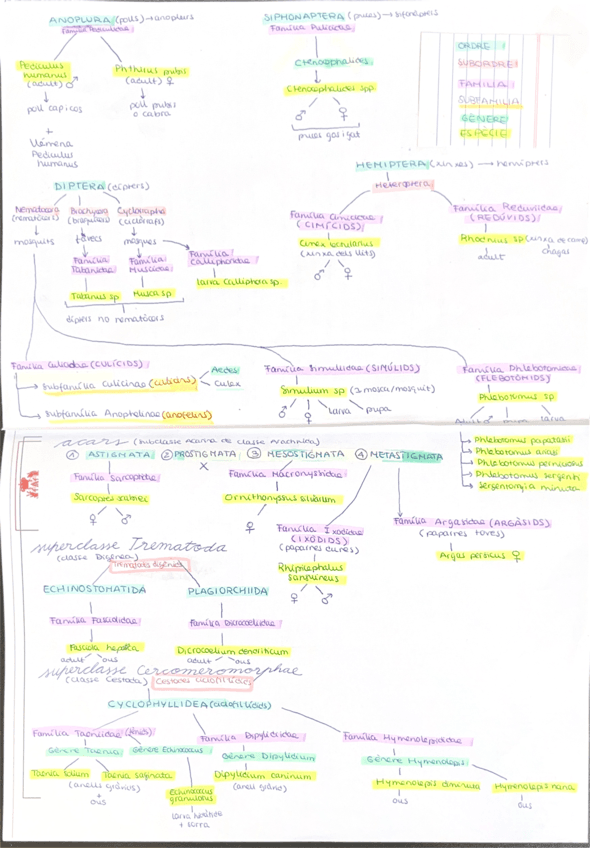 ANOPLURA (polls) → anoplurs
Família Pediculidae
Pediculus humanus (adult) ♂
poll capicos
+
Llémena Pediculus humanus
Phthirus pubis (adult) ♀
poll pubis o cabra
SIPHONAPTERA (puces) → sifonàpters
Família Pulicidae
Ctenocephalides
Ctenocephalides spp
♂ ♀
puces gos i gat
ORDRE
SUBORDRE
FAMÍLIA
SUBFAMÍLIA
GÈNERE
ESPÈCIE
HEMIPTERA (xinxes) → hemípters
Heteroptera
Família Cimicidae (CIMÍCIDS)
Cimex lectularius
(xinxa dels llits)
♂ ♀
Família Reduviidae (REDÚVIDS)
Rhodnius sp (xinxa de camp)
adult
chagas
DIPTERA (dípters)
Nematocera (nematòcers)
mosquits
Brachycera
tàvecs
Família Tabanidae
Tabanus sp
Cyclorrapha
mosques
Família Muscidae
Musca sp
Família Calliphoridae
larva Calliphora sp.
dípters no nematòcers
Família Culicidae (CULÍCIDS)
Subfamília Culicinae (culicins)
Aedes
Culex
Subfamília Anophelinae (anofelins)
Família Simuliidae (SIMÚLIDS)
Simulium sp (mosca/mosquit)
♂ ♀ larva pupa
Família Phlebotomidae (FLEBOTÒMIDS)
Phlebotomus sp
Adult ♂ larva
Phlebotomus papatasi
Phlebotomus ariasi
Phlebotomus perniciosus
Phlebotomus sergenti
Sergentomyia minuta
acars (subclasse Acarina de classe Arachnida)
① ASTIGMATA ② PROSTIGMATA ③ MESOSTIGMATA ④ METASTIGMATA
X
Família Sarcoptidae
Sarcoptes scabiei
♀ ♂
Família Macronyssidae
Ornithonyssus silviarum
♀
Família Ixodidae (IXÒDIDS)
(paparres dures)
Rhipicephalus sanguineus
♀ ♂
Família Argasidae (ARGÀSIDS)
(paparres toves)
Argas persicus ♀
superclasse Trematoda
(classe Digenea)
Trematodes digènids
ECHINOSTOMATIDA
Família Fasciolidae
Fasciola hepatica
adult ous
PLAGIORCHIIDA
Família Dicrocoeliidae
Dicrocoelium dendriticum
adult ous
superclasse Cercomeromorphae
(classe Cestoda)
Cestodes ciclofil·lidis
CYCLOPHYLLIDEA (ciclofil·lidis)
Família Taeniidae (tènids)
Gènere Taenia
Gènere Echinococcus
Taenia solium
Taenia saginata
(anells gràvius)
+
ous
Echinococcus granulosus
larva hidàtide
+ sorra
Família Dipylidiidae
Gènere Dipylidium
Dipylidium caninum
(anell gràvid)
Família Hymenolepididae
Gènere Hymenolepis
Hymenolepis diminuta
ous
Hymenolepis nana
ous